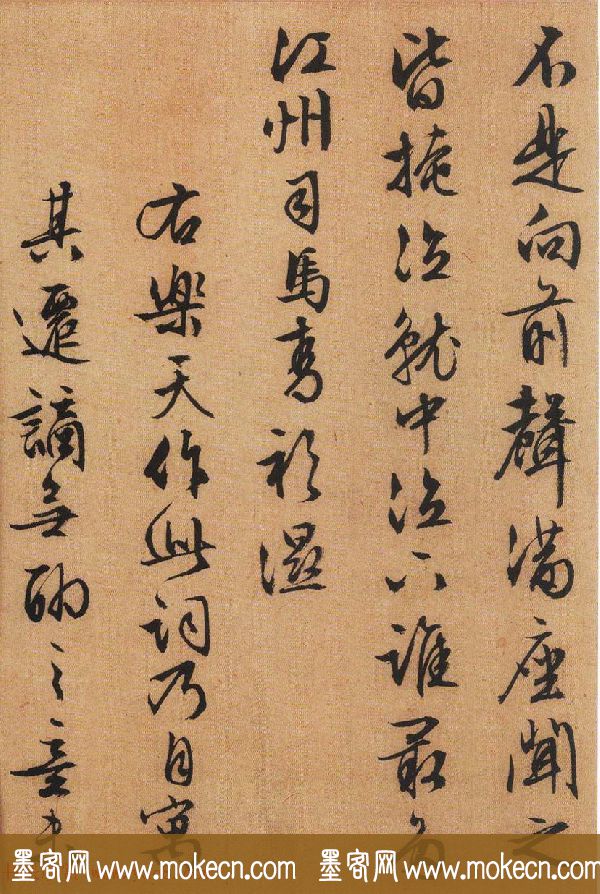 不是向前聲滿座聞之
皆掩泣就中泣下誰最多
江州司馬青衫濕
右樂天作此詞乃自寓
其遷謫無聊之意
墨客网 www.mokecn.com 墨客网 www.mokecn.com